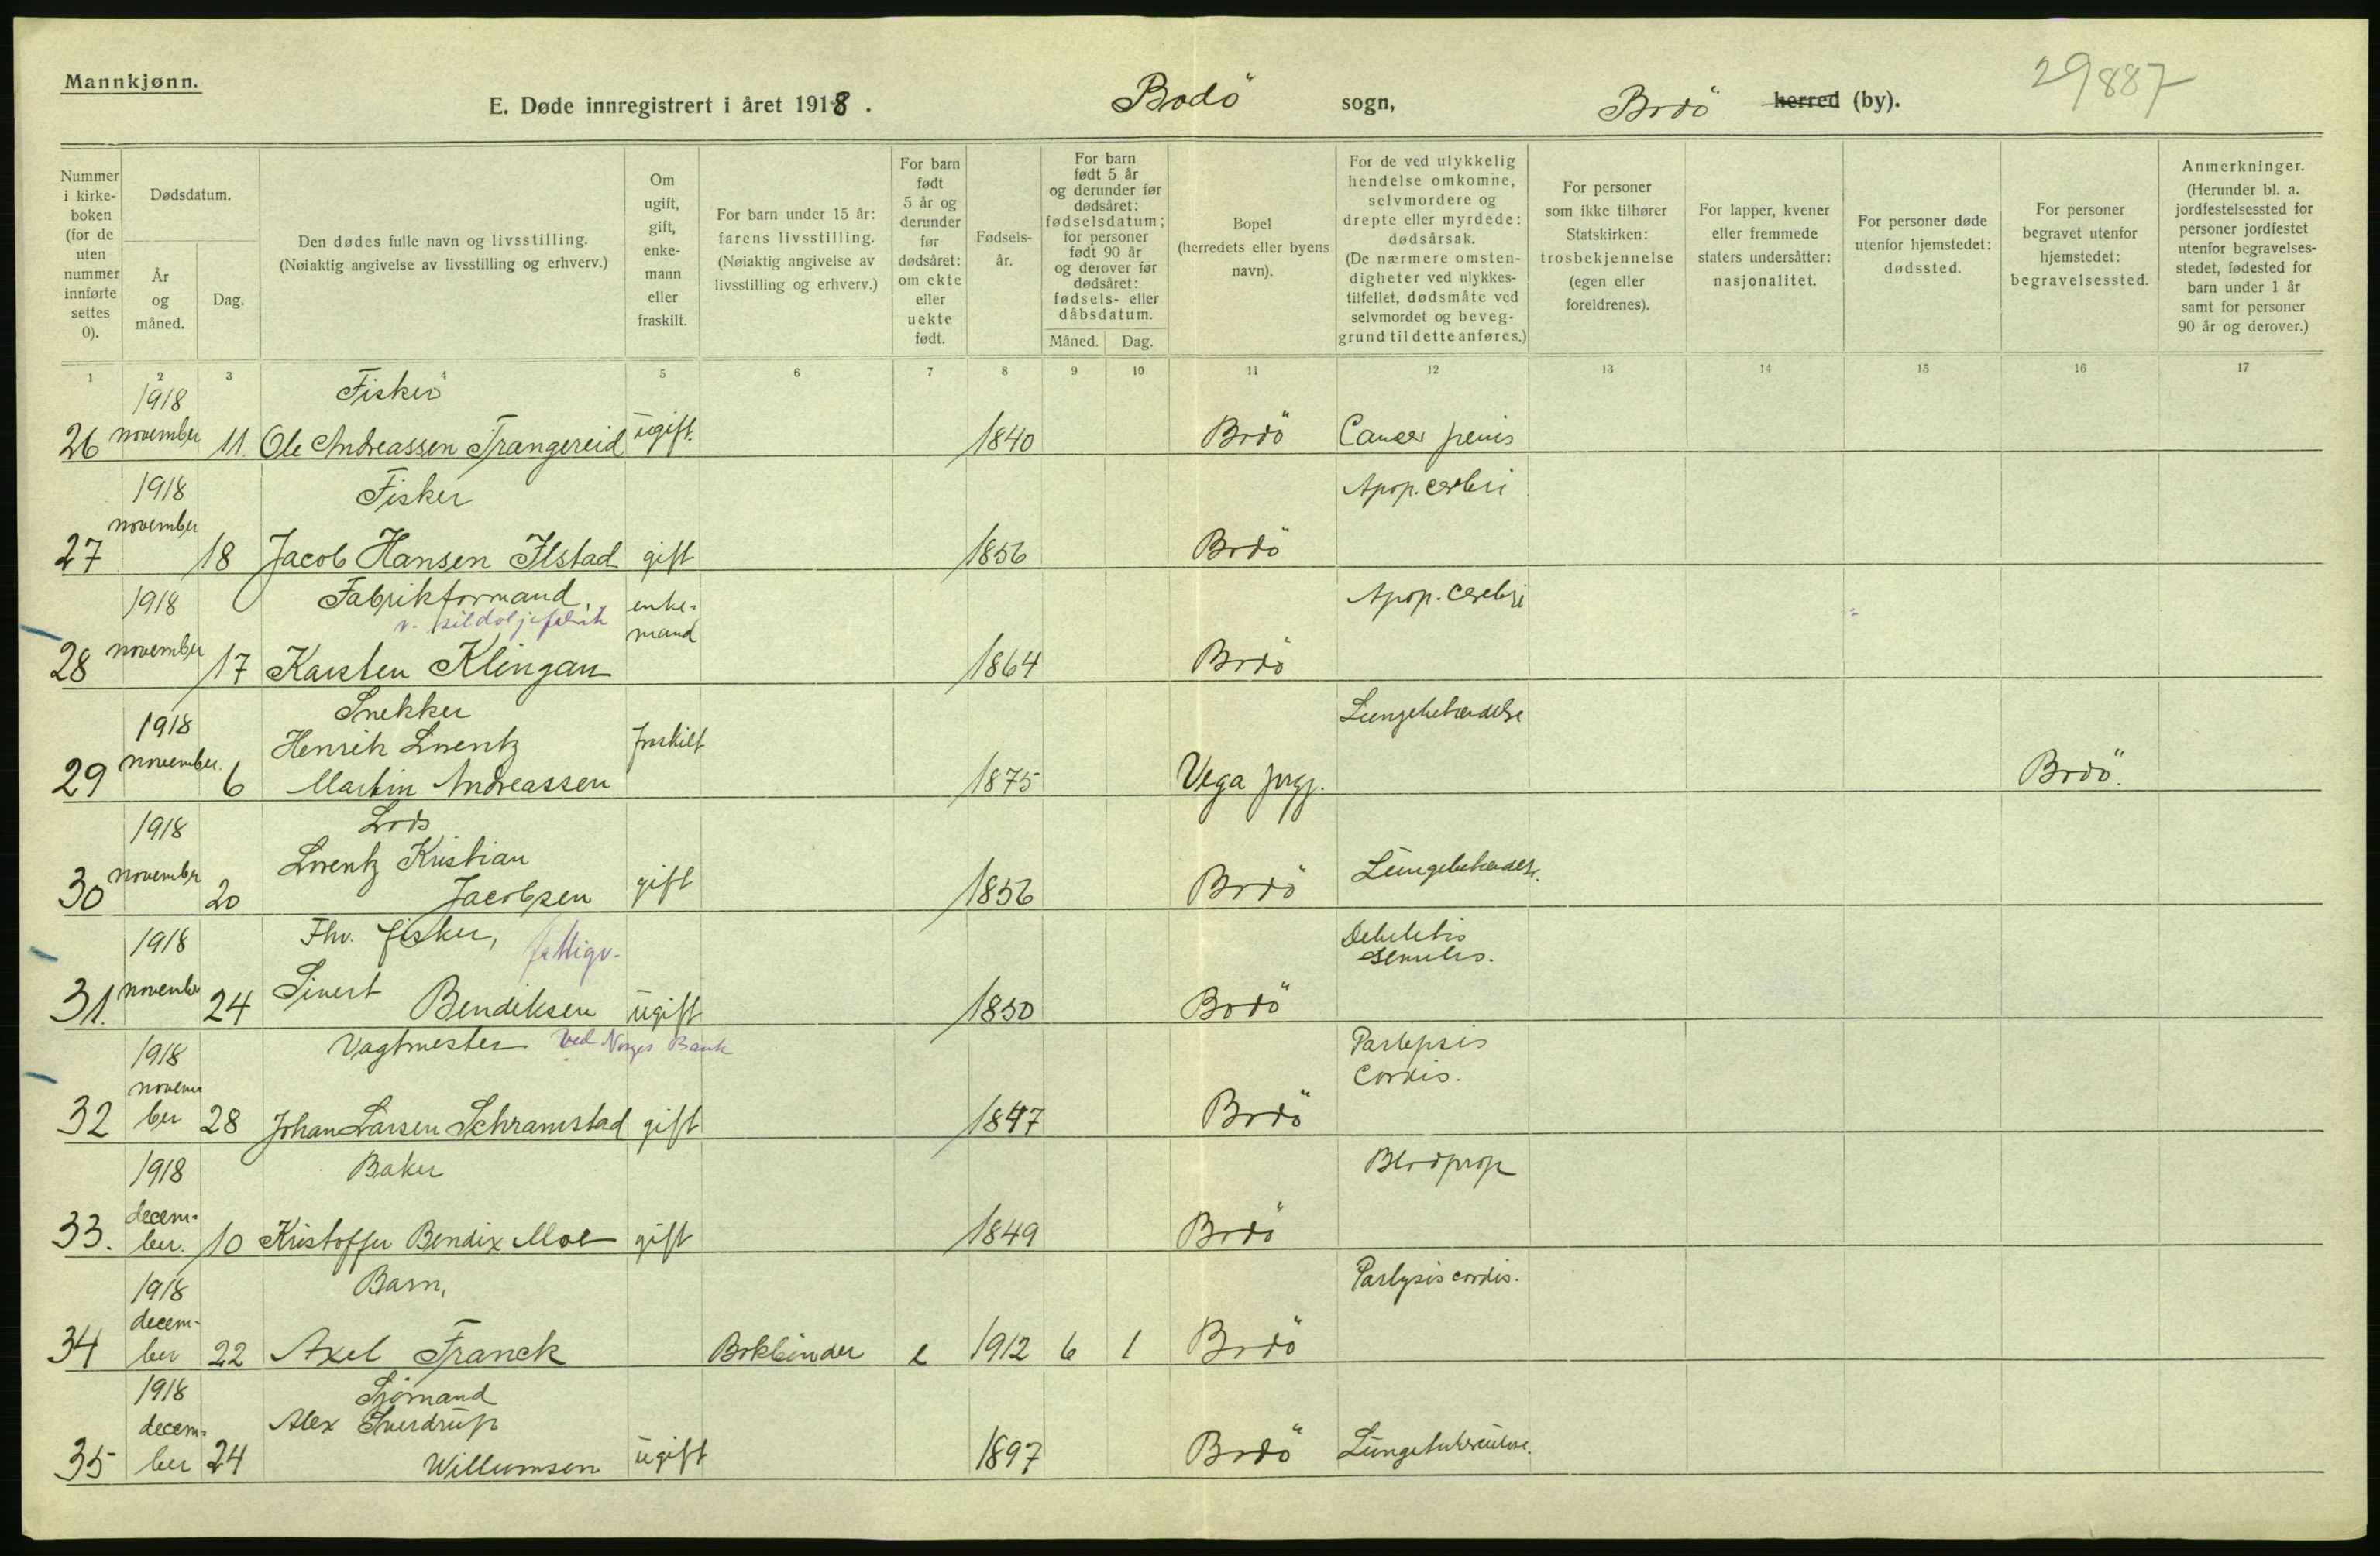 Mannkjønn.
29887
E. Døde innregistrert i året 1918. Bodö sogn, Bodö herred (by).
Nummer i kirke-boken (for de uten nummer innførte settes 0).
Dødsdatum.
År og måned.
Dag.
Den dødes fulle navn og livsstilling.
(Nøiaktig angivelse av livsstilling og erhverv.)
Om ugift, gift, enke-mann eller fraskilt.
For barn under 15 år: farens livsstilling.
(Nøiaktig angivelse av livsstilling og erhverv.)
For barn født 5 år og derunder før dødsåret: om ekte eller uekte født.
Fødsels-år.
For barn født 5 år og derunder før dødsåret: fødselsdatum; for personer født 90 år og derover før dødsåret: fødsels- eller dåbsdatum.
Måned. Dag.
Bopel (herredets eller byens navn).
For de ved ulykkelig hendelse omkomne, selvmordere og drepte eller myrdede: dødsårsak.
(De nærmere omsten-digheter ved ulykkes-tilfellet, dødsmåte ved selvmordet og beveg-grund til dette anføres.)
For personer som ikke tilhører Statskirken: trosbekjennelse (egen eller foreldrenes).
For lapper, kvener eller fremmede staters undersåtter: nasjonalitet.
For personer døde utenfor hjemstedet: dødssted.
For personer begravet utenfor hjemstedet: begravelsessted.
Anmerkninger.
(Herunder bl. a. jordfestelsessted for personer jordfestet utenfor begravelses-stedet, fødested for barn under 1 år samt for personer 90 år og derover.)
1 2 3 4 5 6 7 8 9 10 11 12 13 14 15 16 17
1918 Fisker
26 november 11. Ole Andreassen Trangereid ugift. 1840 Bodö Cancer penis
1918 Fisker Apop. cerebri
27 november 18 Jacob Hansen Ilstad gift 1856 Bodö
1918 Fabrikformand, enke- Apop. cerebri
v. sildoljefabrik mand
28 november 17 Karsten Klingan 1864 Bodö
1918 Snekker Lungebetændelse
Henrik Lorentz fraskilt
29 november. 6 Martin Andreassen 1875 Vega prgj. Bodö.
1918 Lods
Lorentz Kristian
30 november 20 Jacobsen gift 1856 Bodö Lungebetændelse.
1918 Fhv. fisker, fattigv. Debilitis senilis.
31. november 24 Sivert Bendiksen ugift 1850 Bodö
1918 Vagtmester ved Norges Bank Parlepsis Cordis.
32 november 28 Johan Larsen Schramstad gift 1847 Bodö
1918 Baker Blodprop
33. decem-ber. 10 Kristoffer Bendix Moe gift 1849 Bodö
1918 Barn, Parlysis cordis.
34 decem-ber 22 Axel Franck Bokbinder e 1912 6 1 Bodö
1918 Sjømand
decem- Alex Sverdrup
35 ber 24 Willumsen ugift 1897 Bodö Lungetuberculose.